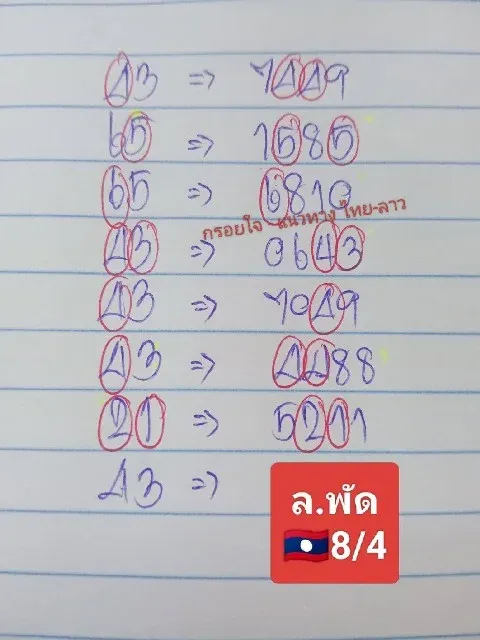 43 => 7449
65 => 1585
65 => 6810
กรอยใจ แนวทาง ไทย-ลาว
43 => 0643
43 => 7049
43 => 4488
21 => 5211
43 =>
ล.พัด
🇱🇦8/4